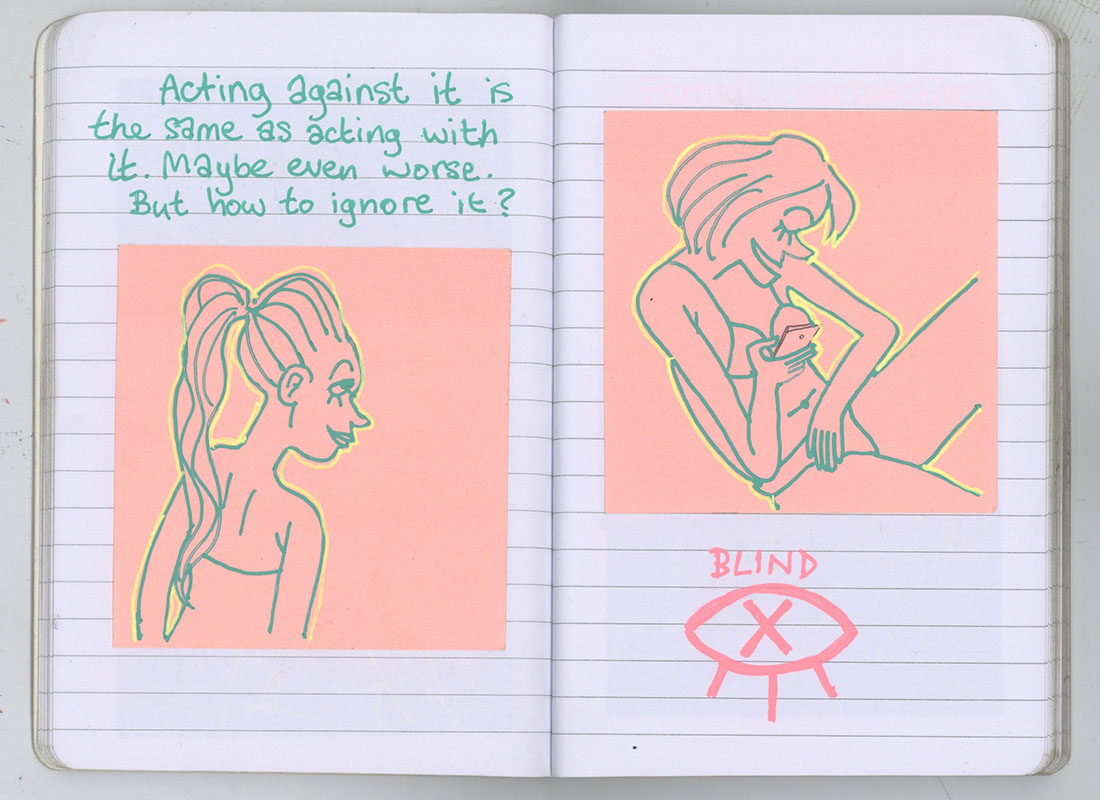 Acting against it is
the same as acting with
it. Maybe even worse.
But how to ignore it?
BLIND